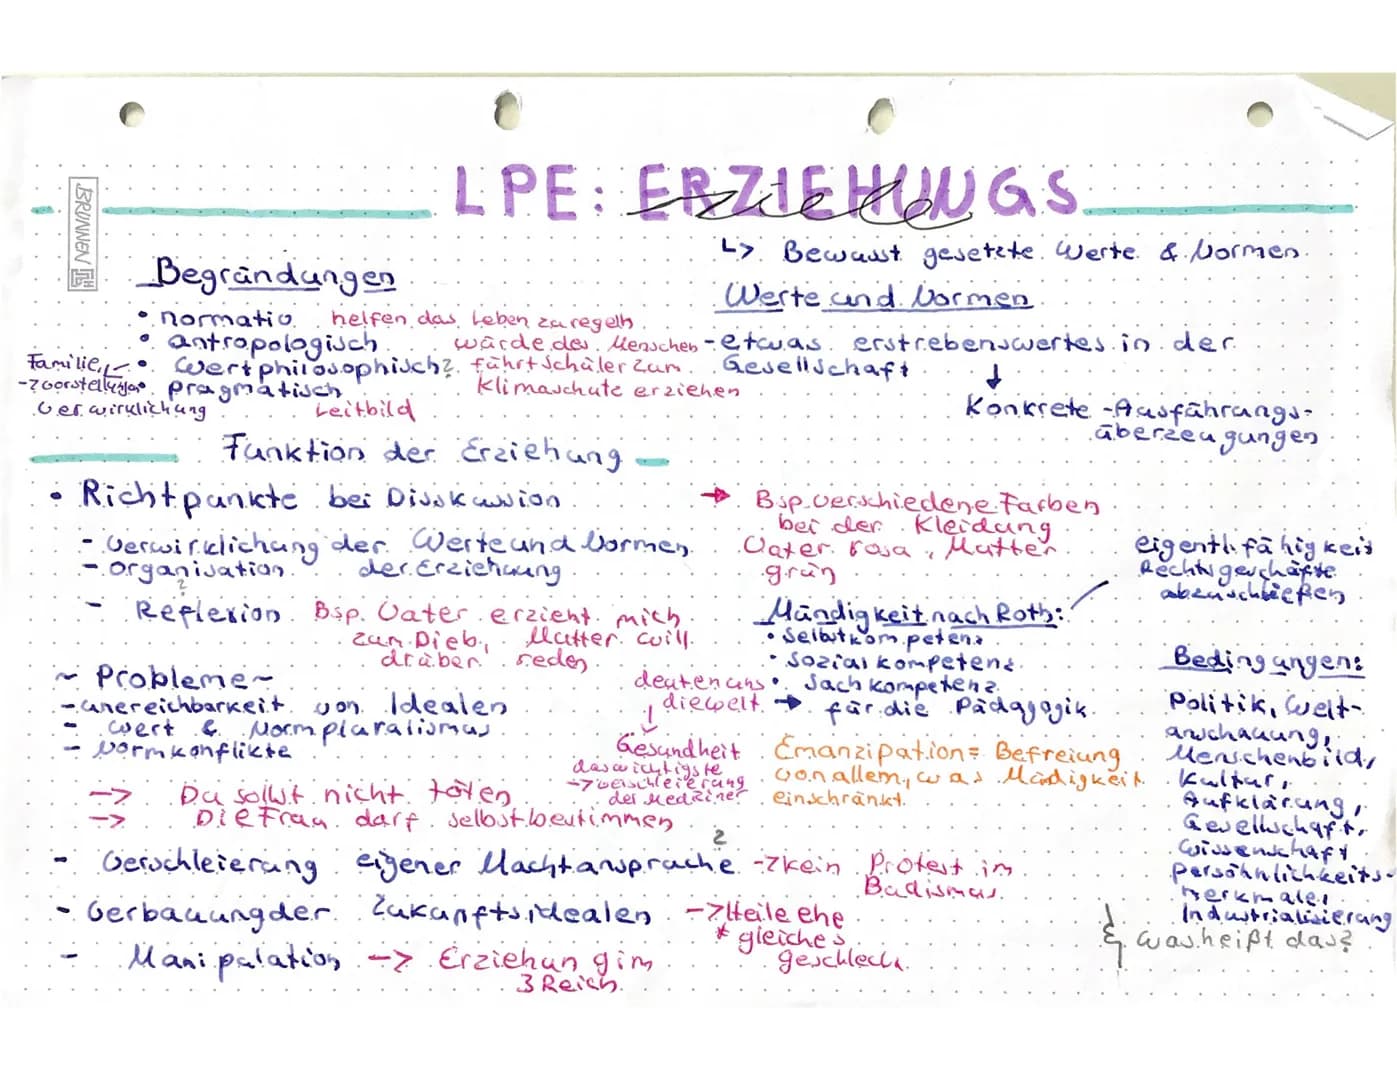 LPE: ERZIEHUNGS
ziele
BRUNNEN
↳ Bewusst gesetzte Werte & Normen
Begründungen
• normativ helfen das Leben zu regeln
• antropologisch würde des Menschen
• wertphilosophisch? führt Schüler zum
• pragmatisch Klimaschutz erziehen
Leitbild
Familie
->vorstellungen
verwirklichung
Werte und Normen
- etwas erstrebenswertes in der
Gesellschaft
↓
Konkrete - Ausführungs-
überzeugungen
Funktion der Erziehung
• Richtpunkte bei Disskussion
- verwirklichung der Werte und Normen
- organisation der Erziehung
?
- Reflexion Bsp. Vater erzieht mich
zum Dieb, Mutter will
drüber reden
→ Bsp. verschiedene Farben
bei der Kleidung
Vater rosa, Mutter
grün
Mündigkeit nach Roth:
• Selbstkompetenz
• Sozialkompetenz
• Sachkompetenz
→ für die Pädagogik
eigentl. fähigkeit
Rechtsgeschäfte
abzuschließen
~ Probleme ~
- unereichbarkeit von Idealen
- Wert & Normpluralismus
- Normkonflikte
-> Du sollst nicht töten
-> Die Frau darf selbst bestimmen
deuten uns
die welt
Gesundheit
das wichtigste
-> verschleierung
der Mediziner
Emanzipation = Befreiung
von allem, was Mündigkeit
einschränkt.
Bedingungen:
Politik, Welt-
anschauung,
Menschenbild,
Kultur,
Aufklärung,
Gesellschaft,
Wissenschaft
Persöhnlichkeits-
merkmale,
Industrialisierung
was heißt das?
?
- Verschleierung eigener Machtansprüche -> kein Protest im
Budismus
- Verbauung der Zukunftsidealen -> Heile ehe
* gleiches
geschlech.
- Manipulation -> Erziehung im
3 Reich